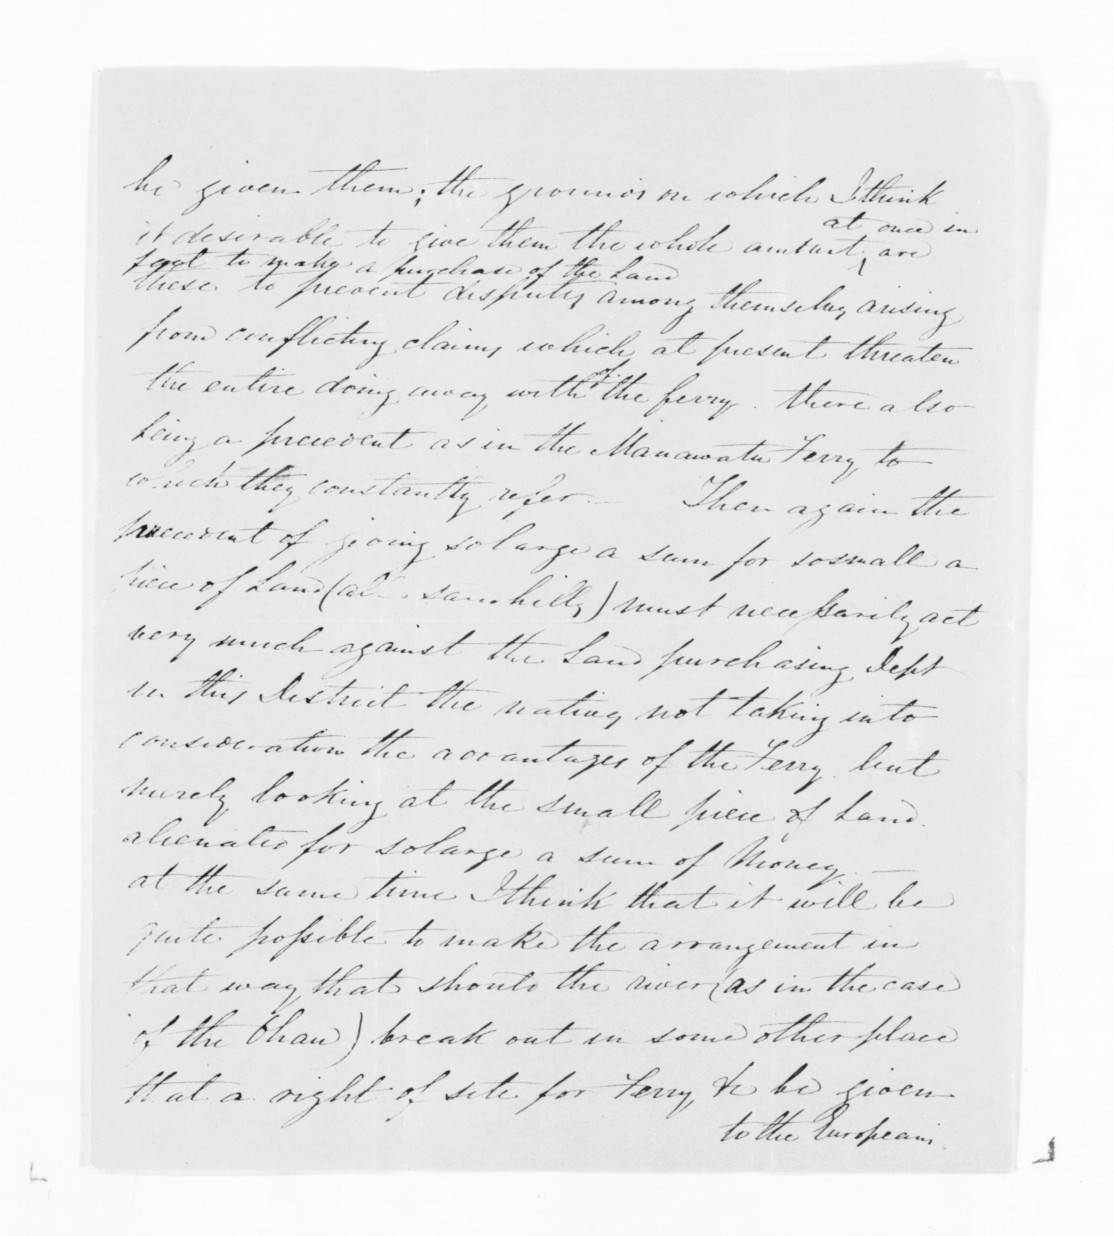 be given them; the grounds on which I think
at once in
it desirable to give them the whole amount, are
fact to make a purchase of the Land
these to prevent disputes among themselves arising
from conflicting claims which at present threaten
the entire doing away with of the ferry. there also
being a precedent as in the Manawatu Ferry to
which they constantly refer. — Then again the
precedent of giving so large a sum for so small a
piece of Land (all sandhills) must necessarily act
very much against the Land purchasing Dept
in this District the natives not taking into
consideration the advantages of the Ferry but
merely looking at the small piece of Land.
alienated for so large a sum of Money. —
at the same time I think that it will be
quite possible to make the arrangement in
that way that should the river (as in the case
of the Ohau) break out in some other place
that a right of site for Ferry &c be given
to the Europeans.